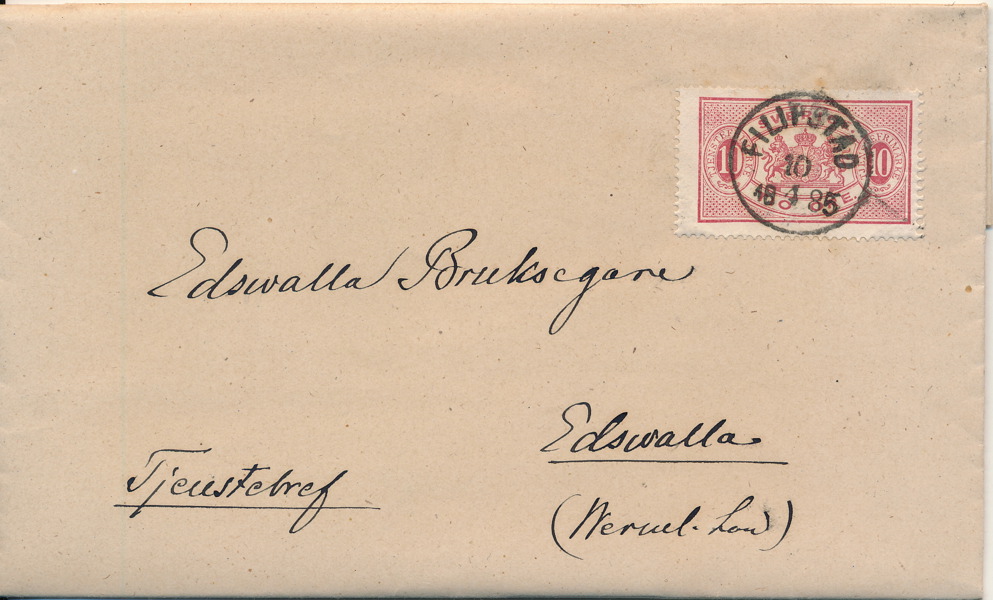 FILIPSTAD
10
18 4 85
10 10
Edswalla Bruksegare
Edswalla
Tjenstebref
(Werml. Län)